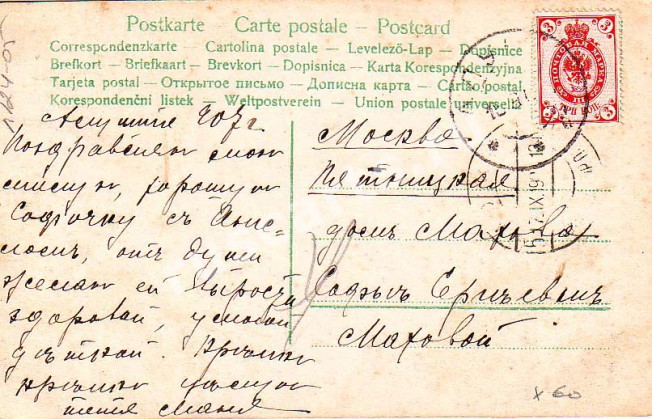 Postkarte – Carte postale – Postcard
Correspondenzkarte – Cartolina postale – Levelező-Lap – Dopisnice
Brefkort – Briefkaart – Brevkort – Dopisnica – Karta Korespondenzyjna
Tarjeta postal – Открытое письмо – Дописна карта – Cartão postal
Korespondenční listek – Weltpostverein – Union postale universelle
3 3
ПОЧТОВАЯ МАРКА
ТРИ КОП.
3 3
Поздравляю мою
милую, хорошую
Софочку съ
отъ души
желаю ей вырости
здоровой, умной
дѣткой. Крѣпко
крѣпко цѣлую
тетя Маня
Москва
Пятницкая
домъ Махова
Софьѣ Сергѣевнѣ
Маховой
IX 19
x 60